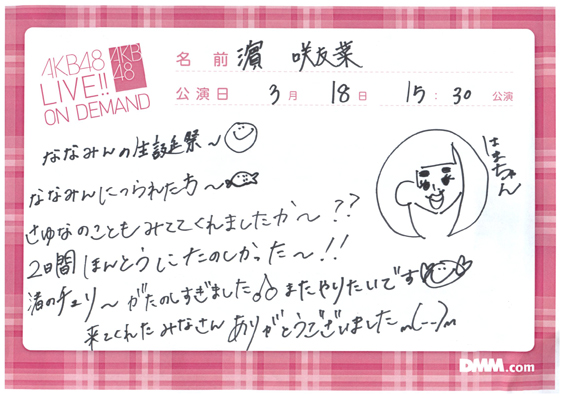 AKB48
LIVE!!
ON DEMAND
AKB
48
名前 濵 咲友菜
公演日 3月 18日 15:30 公演
ななみんの生誕祭〜
ななみんにつられた方〜
はまちゃん
さゆなのこともみててくれましたか〜??
2日間ほんとうにたのしかった〜!!
渚のチェリ〜がたのしすぎました♪またやりたいです
来てくれたみなさんありがとうございましたm(--)m
DMM.com